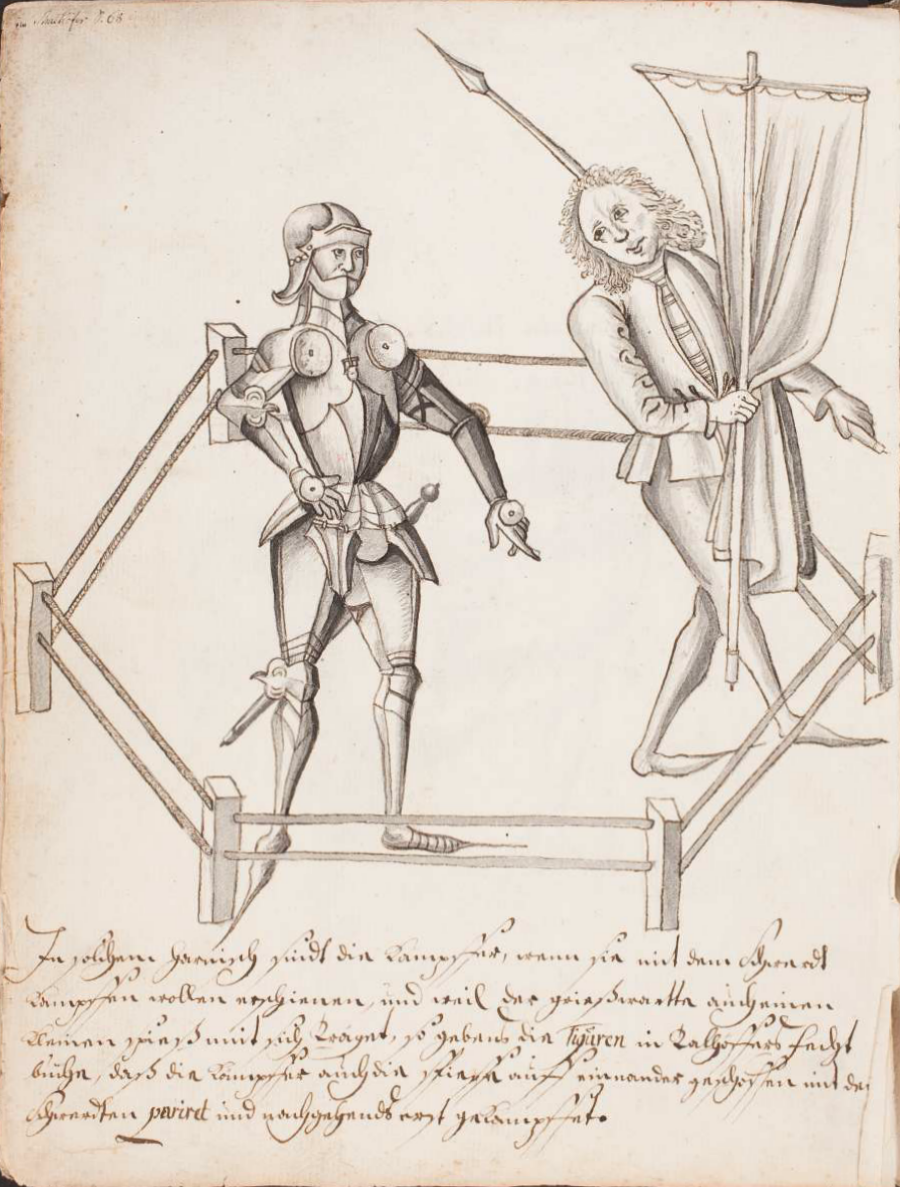 Talhöfer S. 68
In solchem harnisch sindt die Kämpffer, wenn sie mit dem Schwerdt
kämpffen wollen erschienen, und weil der grießwartte auch einen
kleinen spieß mit sich traget, so gebens die figüren in Talhoffers fecht
buche, daß die Kämpffer auch die spiesse auff einander geschossen mit den
Schwerdten pariret und nachgehends erst gekämpffet.